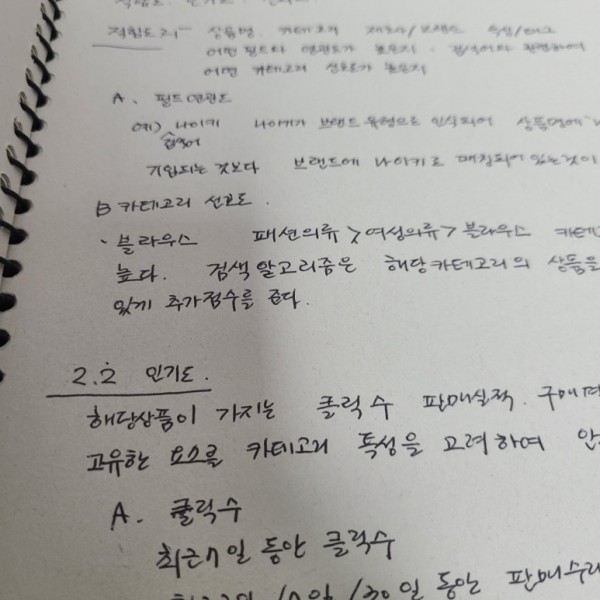 적합도란 상품명. 카테고리 제조사/브랜드 속성/태그
어떤 필드와 연관도가 높은지. 검색어와 관련하여
어떤 카테고리 선호도가 높은지
A. 필드연관도
예) 나이키 나이키가 브랜드 유형으로 인식되어 상품명에
검색어
기입되는 것보다 브랜드에 나이키로 매칭되어 있는것이
B 카테고리 선호도.
· 블라우스 패션의류 > 여성의류 > 블라우스 카테
높다. 검색 알고리즘은 해당카테고리의 상품을
있게 추가점수를 준다.
2.2 인기도.
해당상품이 가지는 클릭수 판매실적. 구매
고유한 요소를 카테고리 특성을 고려하여
A. 클릭수
최근 7일 동안 클릭수
/30일 동안 판매수